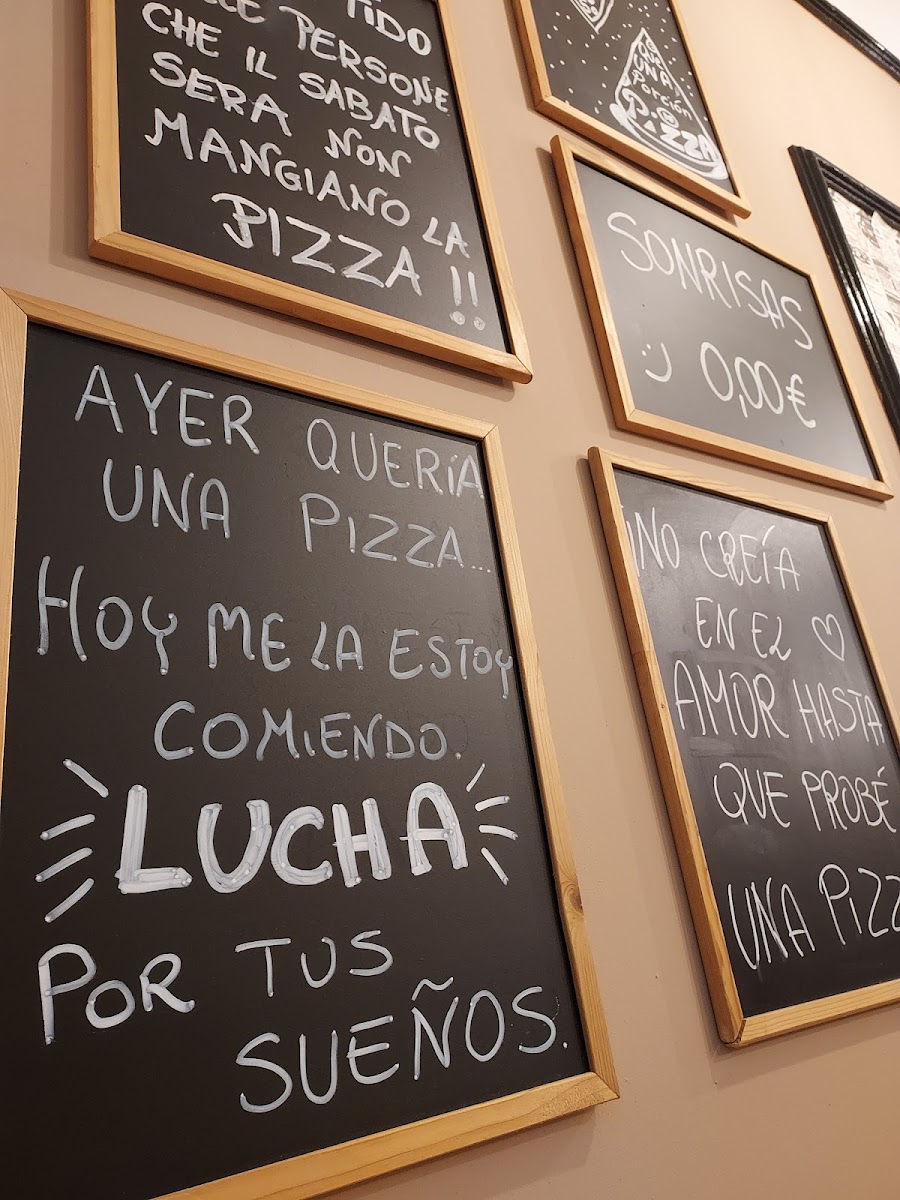 TIDO
LE PERSONE
CHE IL SABATO
SERA NON
MANGIANO LA
PIZZA !!
UNA
Porción
D
PIZZA
SONRISAS
:) 0,00€
AYER QUERÍA
UNA PIZZA...
HOY ME LA ESTOY
COMIENDO.
LUCHA
POR TUS
SUEÑOS.
¡NO CREÍA
EN EL ♡
AMOR HASTA
QUE PROBÉ
UNA PIZZ